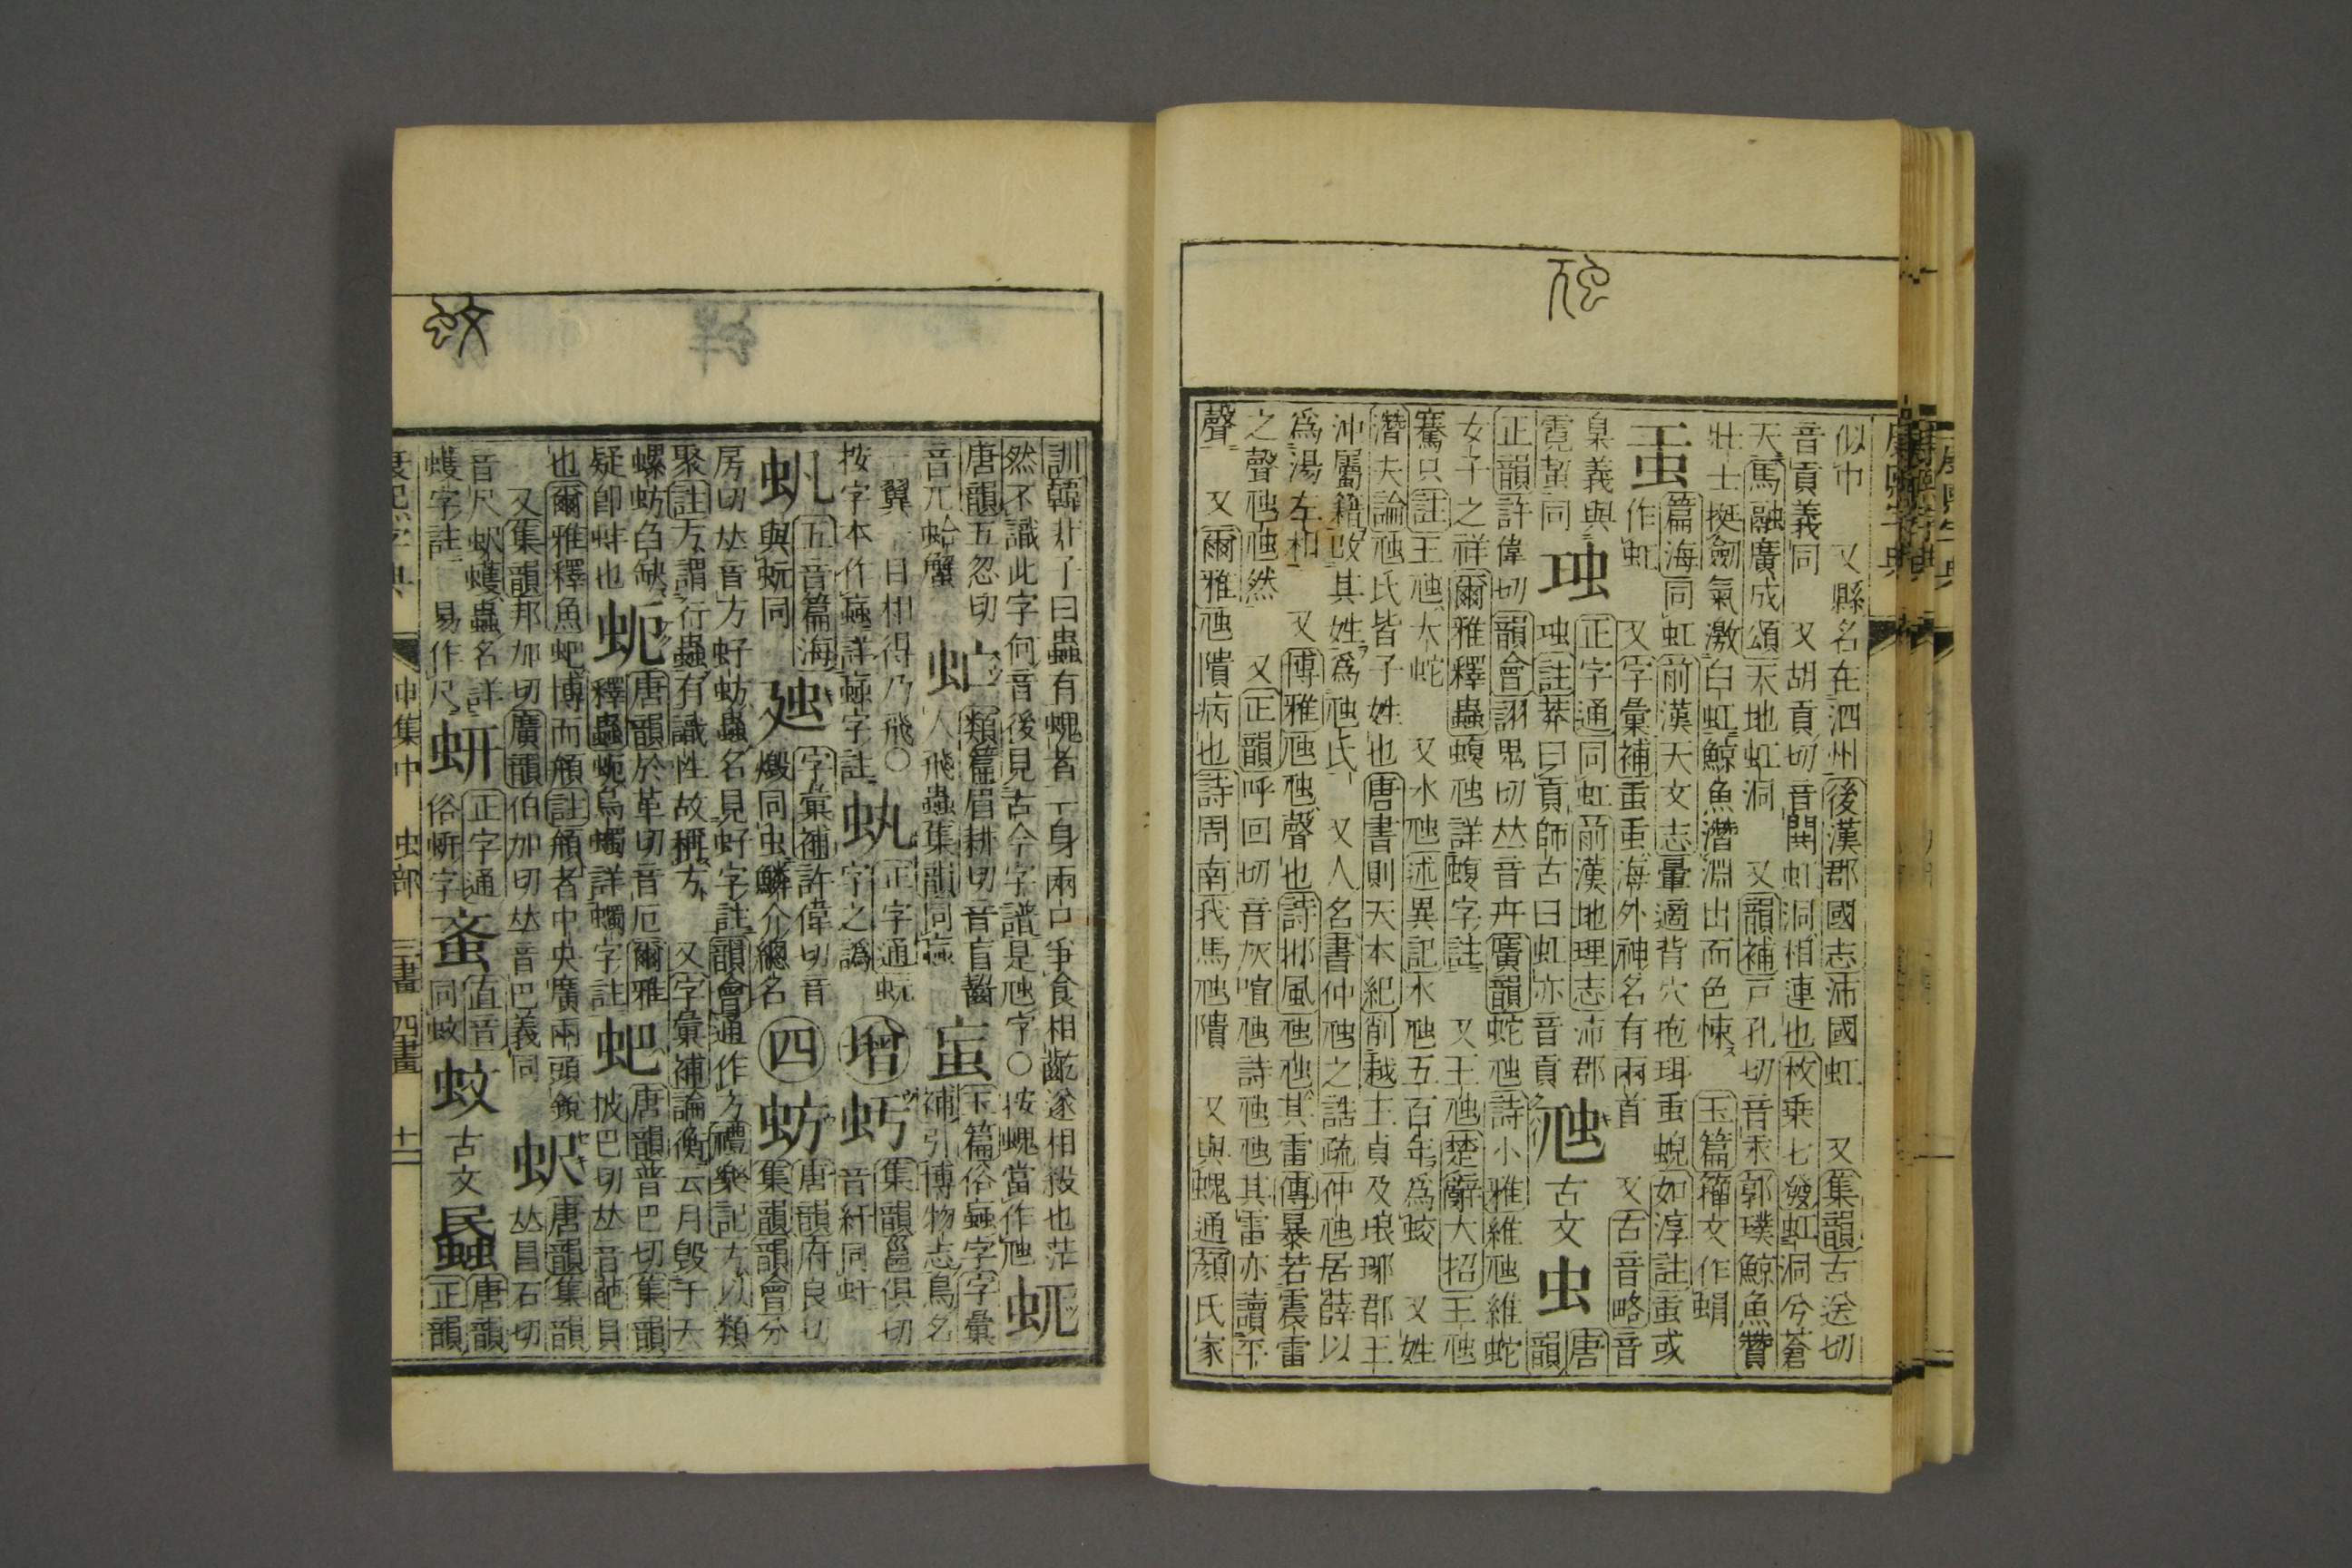 虺
康熙字典
似巾　又縣名在泗州後漢郡國志沛國虹　又集韻古送切
音貢義同　又胡貢切音閧虹洞相連也枚乘七發虹洞兮蒼
天馬融廣成頌天地虹洞　又韻補戸孔切音汞郭璞鯨魚贊
壯士挺劒氣激白虹鯨魚潛淵出而色悚　玉篇籒文作
篇海同虹前漢天文志暈適背穴抱珥蜺如淳註或
作虹　又字彙補海外神名有兩首　又古音略音
義與
同
正字通同虹前漢地理志沛郡
註莽曰貢師古曰虹亦音貢
虺 古文 虫 唐韻
正韻許偉切韻會詡鬼切𠀤音卉廣韻蛇虺詩小雅維虺維蛇
女子之祥爾雅釋蟲蝮虺詳蝮字註　又王虺楚辭大招王虺
騫只註王虺大蛇　又水虺述異記水虺五百年爲蛟　又姓
潛夫論虺氏皆子姓也唐書則天本紀削越王貞及琅邪郡王
沖屬籍改其姓爲虺氏　又人名書仲虺之誥疏仲虺居薛以
爲湯左相　又博雅虺虺聲也詩邶風虺虺其雷傳暴若震雷
之聲虺虺然　又正韻呼回切音灰喧虺詩虺虺其雷亦讀平
聲　又爾雅虺隤病也詩周南我馬虺隤　又與螝通顏氏家
蚊
訓韓非子曰蟲有螝者一身兩口爭食相齕遂相殺也茫
然不識此字何音後見古今字譜是虺字○按螝當作虺
唐韻五忽切
音兀蛤蟹
虻 類篇眉耕切音盲齧
人飛蟲集韻同蝱
䖟 玉篇俗蝱字字彙
補引博物志鳥名
一翼一目相得乃飛○
按字本作蝱詳蝱字註
正字通蚖
字之譌
增
集韻邕俱切
音紆同虶
五音篇海
與蚖同
字彙補許偉切音
燬同虫鱗介總名
四
蚄 唐韻府良切
集韻韻會分
房切𠀤音方虸蚄蟲名見虸字註韻會通作方禮樂記方以類
聚註方謂行蟲有識性故稱方　又字彙補論衡云月毀于天
螺蚄舀缺
疑卽蚌也
蚅 唐韻於革切音厄爾雅
釋蟲蚅烏蠋詳蠋字註
蚆 唐韻普巴切集韻
披巴切𠀤音葩貝
也爾雅釋魚蚆博而頯註頯者中央廣兩頭銳
又集韻邦加切廣韻伯加切𠀤音巴義同
蚇 唐韻集韻
𠀤昌石切
音尺蚇蠖蟲名詳
蠖字註　易作尺
正字通
俗蚈字
直音
同蚊
蚊 古文 唐韻
正韻
康熙字典　申集中　虫部　三畫　四畫　十二